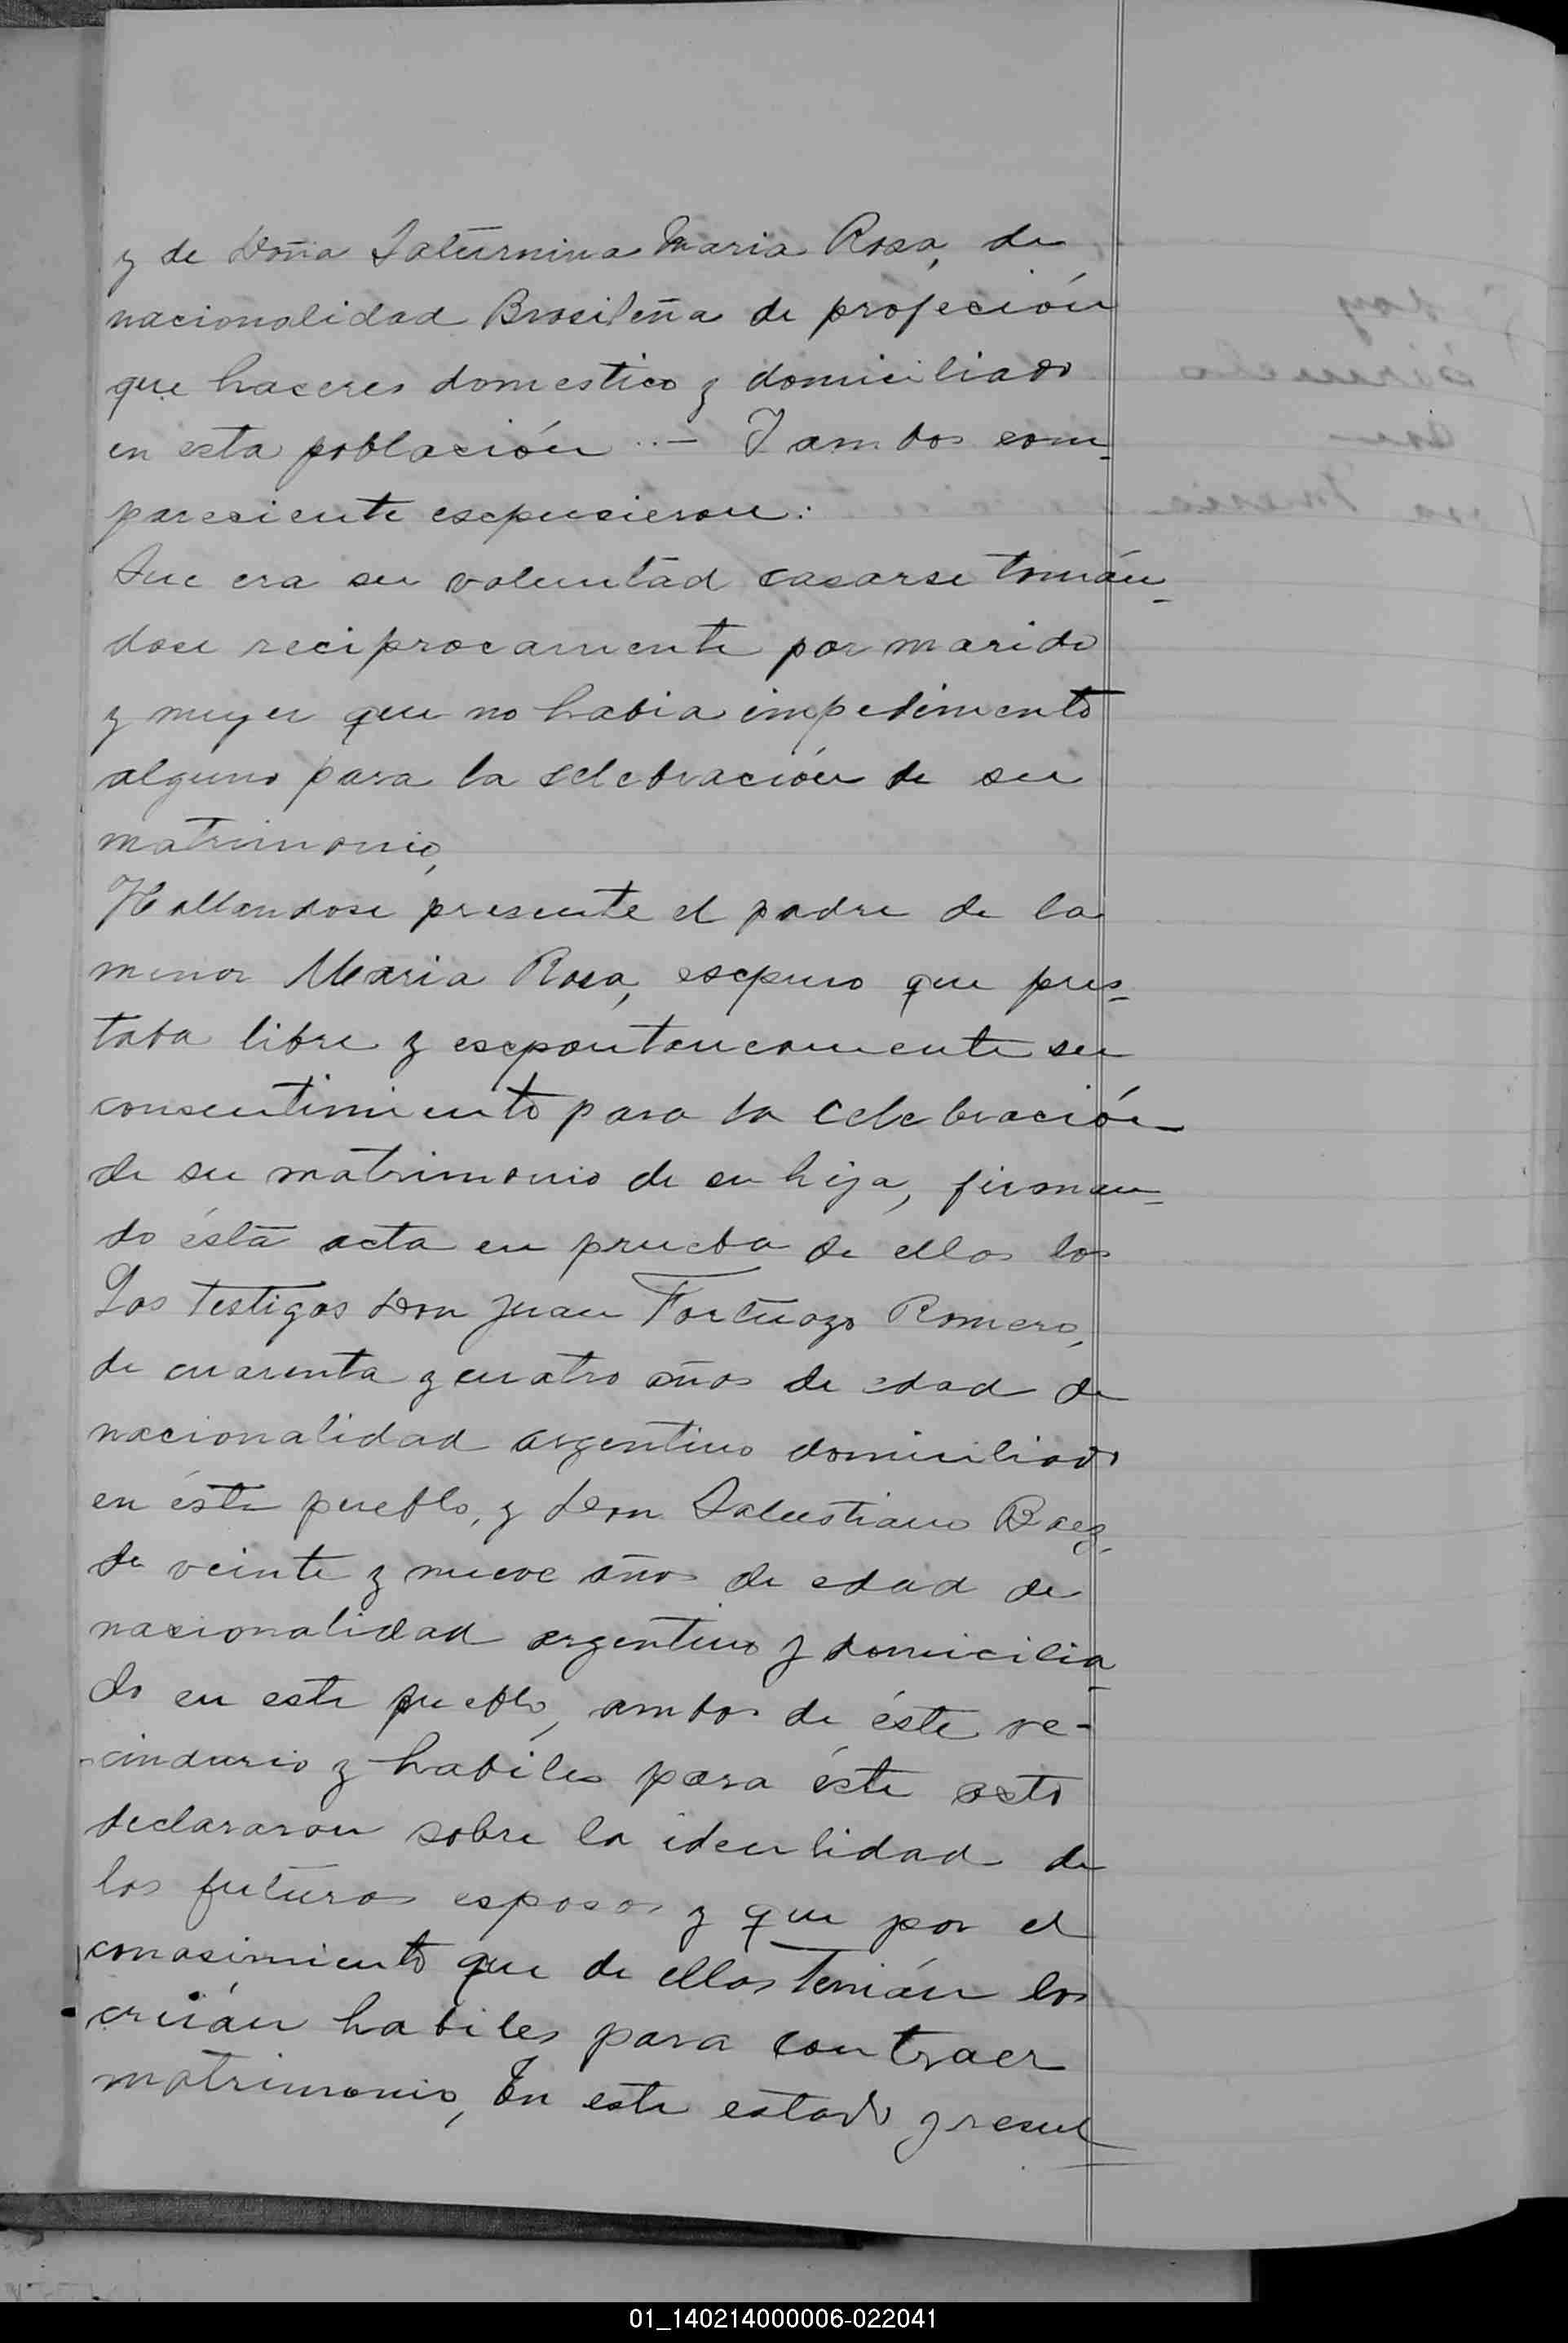 y de Doña Saturnina Maria Rosa, de
nacionalidad Brasileña de profeción
que haceres domestico y domiciliado
en esta población ..– I ambos com-
pareciente escpusieron:
Que era su voluntad casarse tomán-
dose reciprocamente por marido
y muger que no habia impedimento
alguno para la celebración de su
matrimonio,
Hallandose presente el padre de la
menor Maria Rosa, escpuso que pres-
taba libre y escpontaneamente su
consentimiento para la celebración
de su matrimonio de su hija, firman-
do ésta acta en prueba de ellos los
Los testigos Don Juan Fortuozo Romero,
de cuarenta y cuatro años de edad de
nacionalidad argentino domiciliado
en éste pueblo, y Don Salustiano Baez,
de veinte y nueve años de edad de
nacionalidad argentino y domicilia-
do en este pueblo, ambos de éste ve-
cindario y habiles para éste acto
declararon sobre la identidad de
los futuros esposos y que por el
conosimiento que de ellos tenián los
creián habiles para contraer
matrimonio, En este estado y resul
01_140214000006-022041